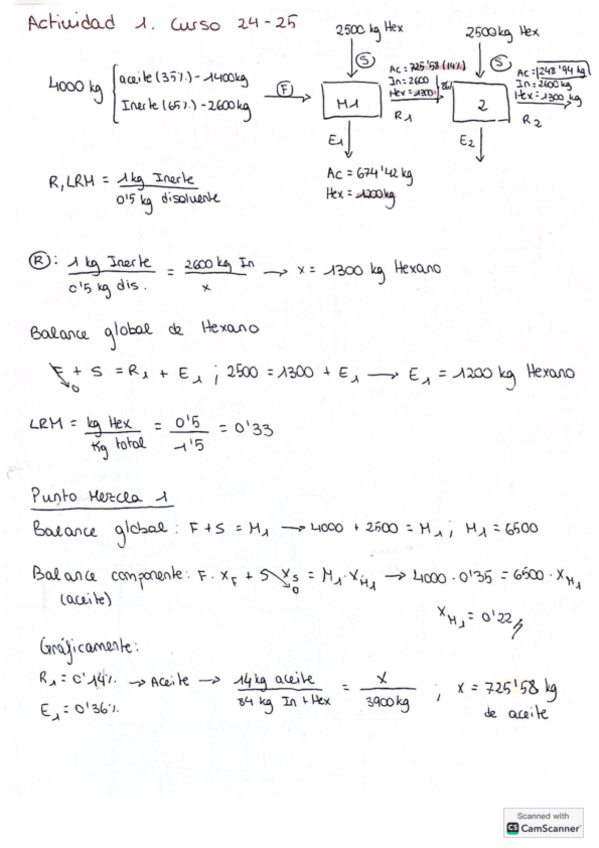 Actividad 1. Curso 24-25
2500 kg Hex
2500 kg Hex
4000 kg
aceite (35%) - 1400kg
Inerte (65%) - 2600kg
F
S
M1
Ac = 725'58 (14%)
In = 2600
Hex = 1300
86%
R1
S
2
Ac = 248'94 kg
In = 2600 kg
Hex = 1300 kg
R2
E1
E2
Ac = 674'42 kg
Hex = 1200kg
R, LRM = 1 kg Inerte / 0'5 kg disoluente
R: 1 kg Inerte / 0'5 kg dis. = 2600 kg In / x → x = 1300 kg Hexano
Balance global de Hexano
F + S = R1 + E1 ; 2500 = 1300 + E1 → E1 = 1200 kg Hexano
0
LRM = kg Hex / kg total = 0'5 / 1'5 = 0'33
Punto Mezcla 1
Balance global: F + S = M1 → 4000 + 2500 = M1 ; M1 = 6500
Balance componente: F · XF + S XS = M1 · XM1 → 4000 · 0'35 = 6500 · XM1
0
(aceite)
XM1 = 0'22
Gráficamente:
R1 = 0'14% → Aceite → 14 kg aceite / 84 kg In + Hex = X / 3900kg ; x = 725'58 kg
E1 = 0'36%
de aceite
Scanned with
CS CamScanner